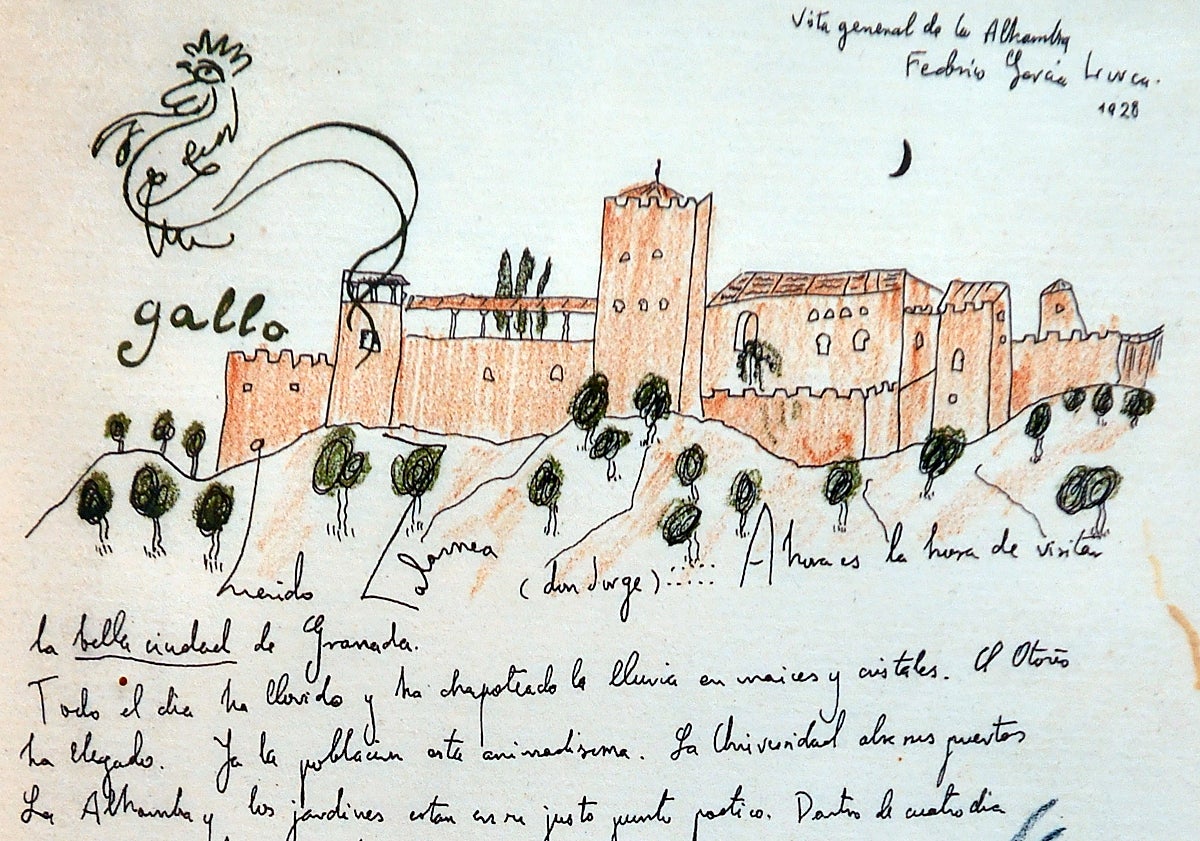 Vista general de la Alhambra
Federico García Lorca.
1928
gallo
Querido alarnea (don Jorge)...... Ahora es la hora de visitar
la bella ciudad de Granada.
Todo el dia ha llovido y ha chapoteado la lluvia en maices y cristales. El Otoño
ha llegado. Ya la poblacion esta animadisima. La Universidad abre sus puertas
La Alhambra y los jardines estan en su justo punto poetico. Dentro de cuatro dia